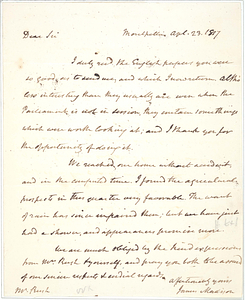 Dear Sir
Montpellier Apl. 23. 1817
I duly recd. the English papers you were
so good as to send me, and which I now return. Altho'
less interesting than they usually are even when the
Parliament is not in session, they contain some things
which were worth looking at; and I thank you for
the opportunity of doing it.
We reached our home without accident,
and in the computed time. I found the agricultural
prospects in this quarter very favorable. The want
of rain has since impaired them; but we have just
had a shower, and appearances promise more.
We are much obliged by the kind expressions
from Mrs. Rush & yourself, and pray you both to be assured
of our sincere respects & cordial regards.
Affectionately yours
James Madison
Mr. Rush